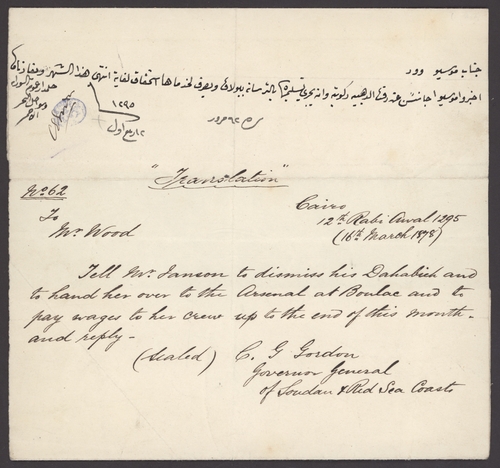 جناب موسيو وود
اخبروا موسيو جانسن عن رفت الدهبيه وانه يجرى تسليمها بالترسانه ببولاق ويصرف لخدماها استحقاق لغاية انتهى هذا الشهر
١٢٩٥
١٢ ربيع اول
"Translation"
No 62
Cairo
To
12th Rabi Awal 1295
Mr. Wood
(16th March 1878)
Tell Mr. Janson to dismiss his Dahabieh and
to hand her over to the Arsenal at Boulac and to
pay wages to her crew up to the end of this month-
and reply-
(sealed) C. G Gordon
Governor General
of Soudan & Red Sea Coasts